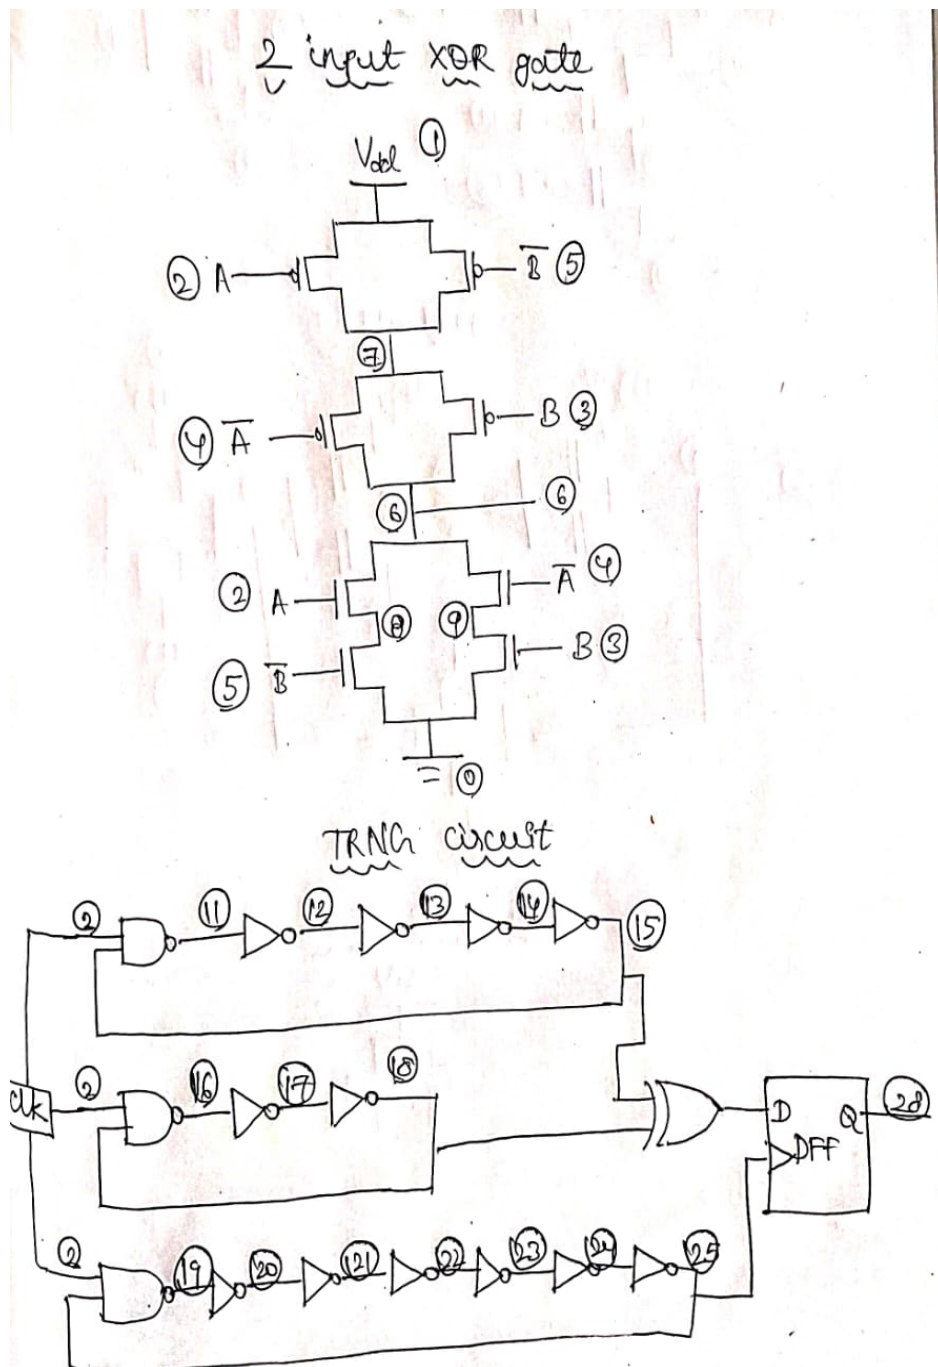 2 input XOR gate
Vdd 1
2 A
B̅ 5
7
4 A̅
B 3
6
6
2 A
A̅ 4
8 9
5 B̅
B 3
0
TRNG circuit
2 11 12 13 14 15
clk 2 16 17 18
D Q 28
DFF
2 19 20 21 22 23 24 25